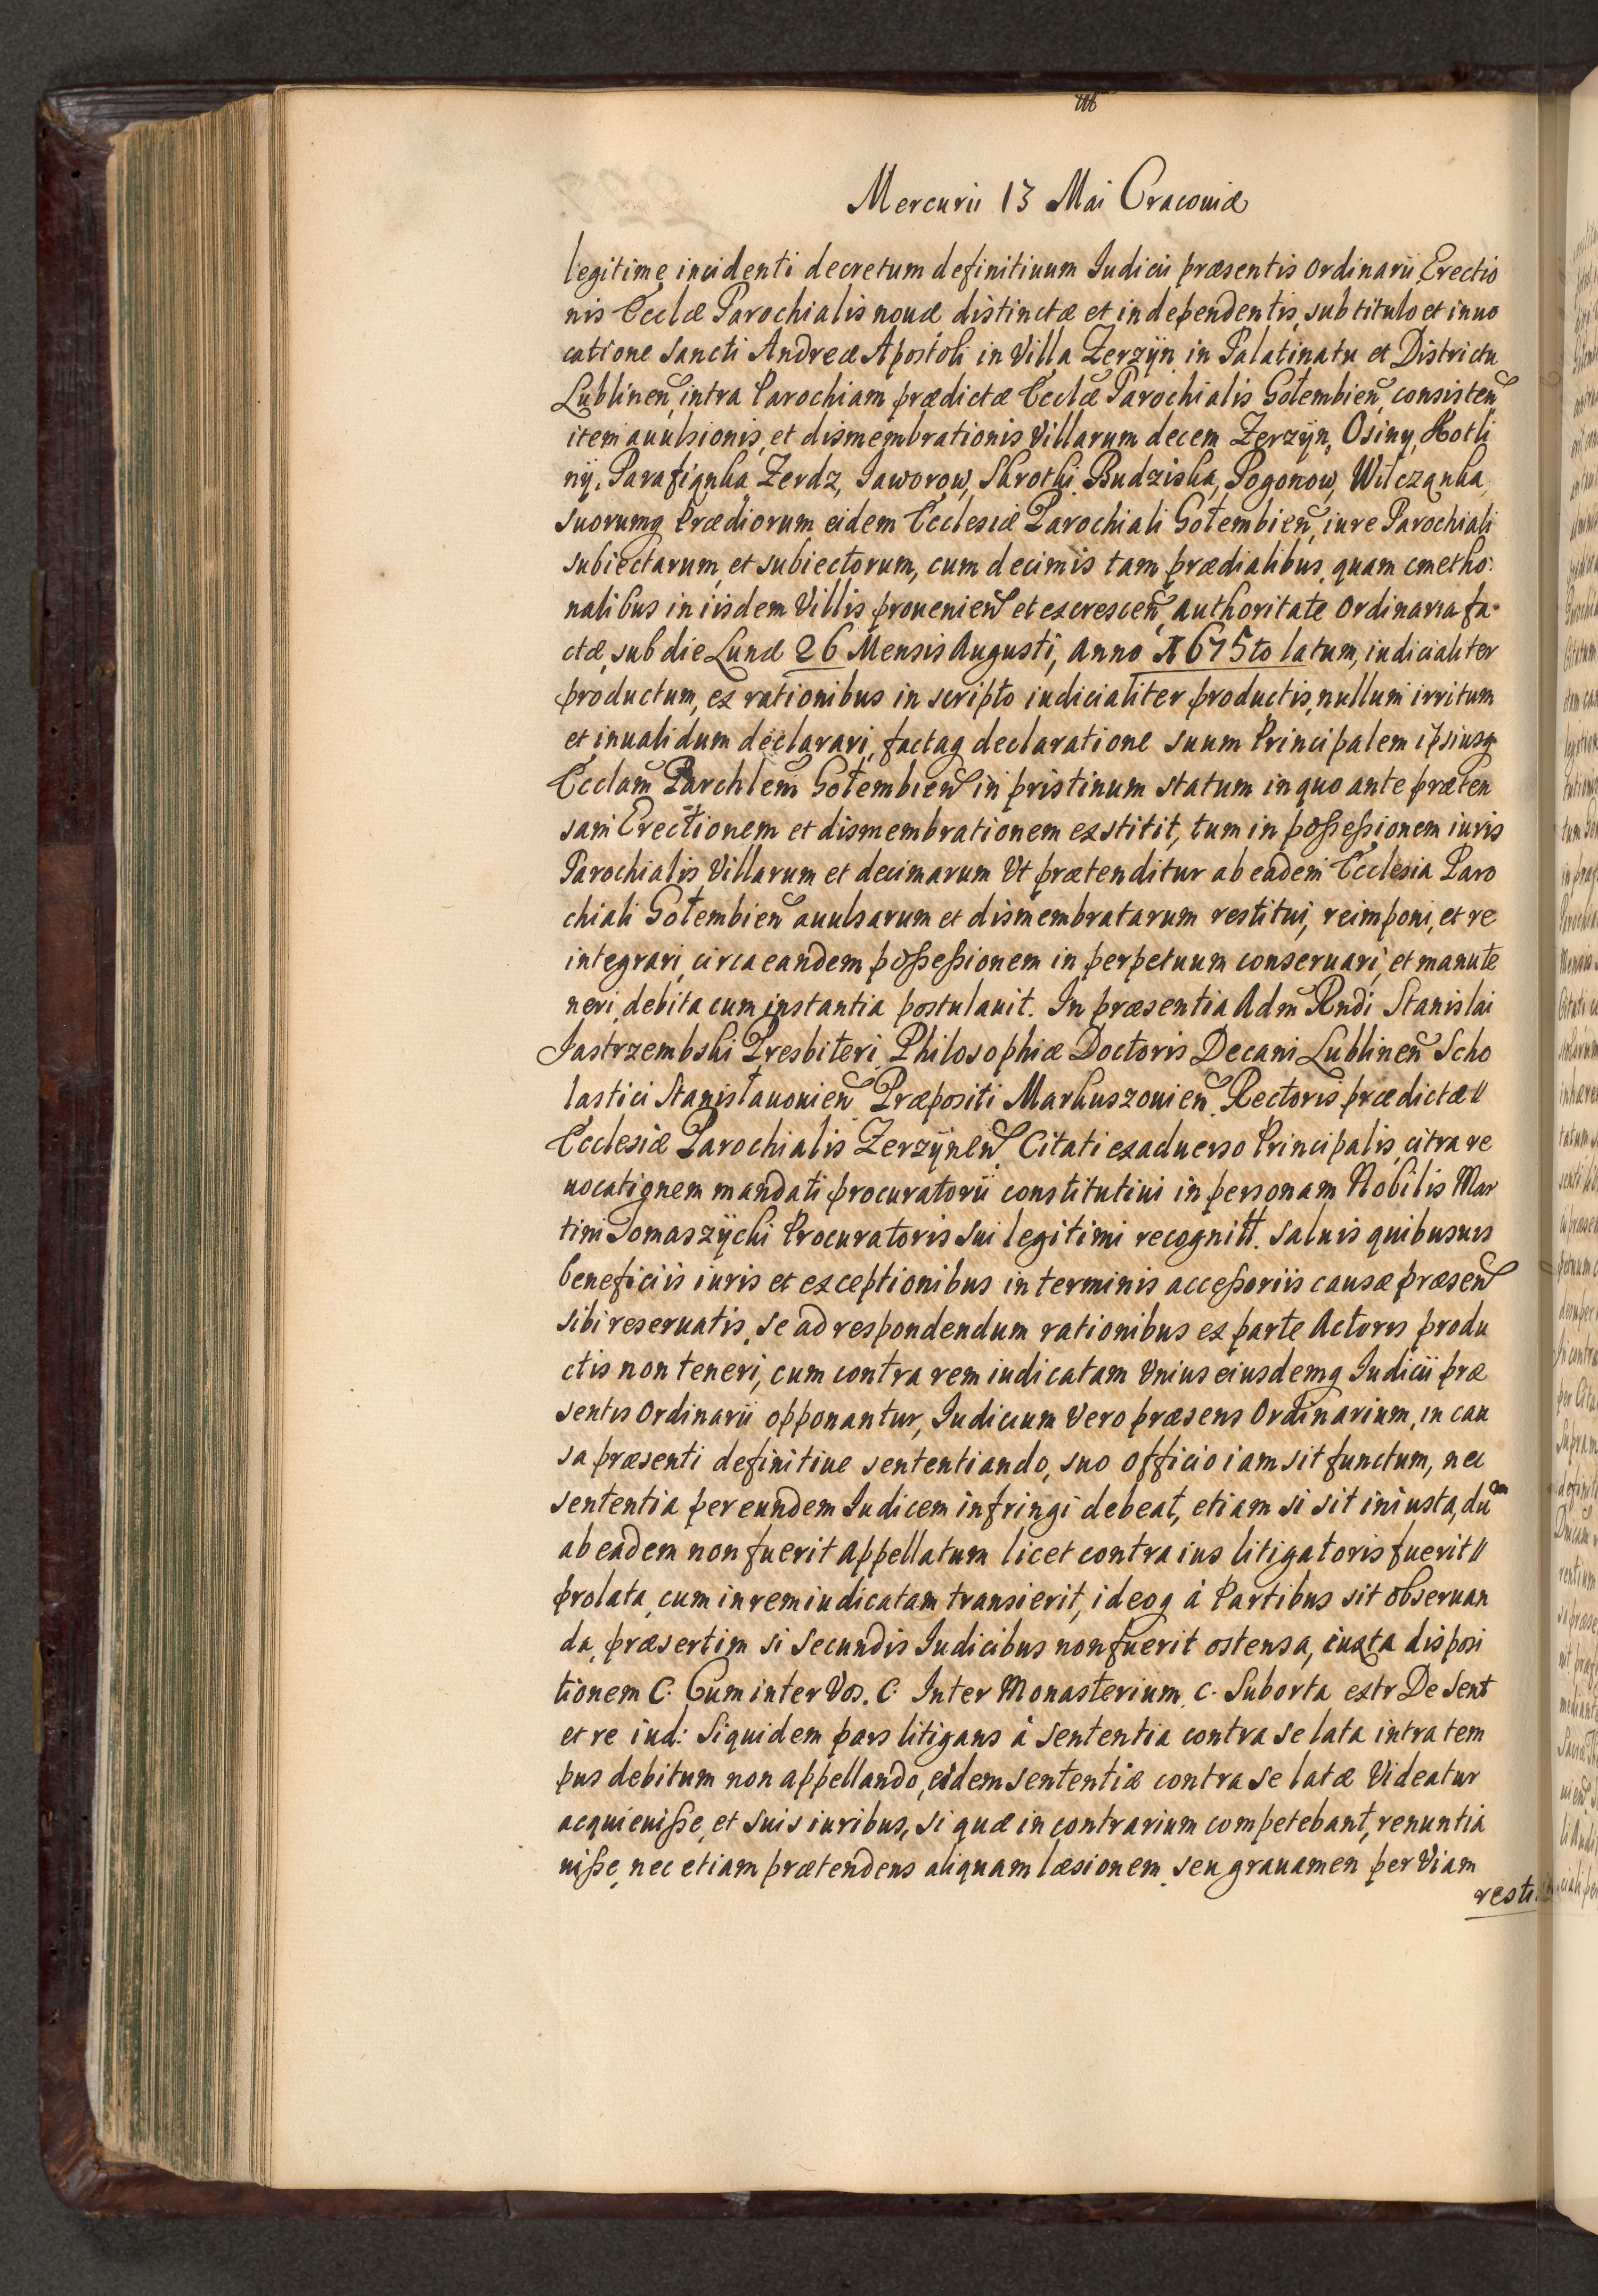 Mercurii 13 Mai Cracouiæ
legitime incidenti decretum definitiuum Iudicii præsentis Ordinarii Erectio
nis Ecclæ Parochialis nouæ distinctæ et independentis, sub titulo et inuo
catione Sancti Andreæ Apostoli in Villa Zerzÿn in Palatinatu et Districtu
Lublinen̄, intra Parochiam prædictæ Ecclæ Parochialis Gołembien̄, consisten̄
item auulsionis, et dismembrationis Villarum decem Zerzÿn, Osiny, Kotli
nÿ, Parafiąnka, Zerdz, Jaworow, Skrotki Budziska, Pogonow, Wilcząnka,
suorumq Prædiorum eidem Ecclesiæ Parochiali Gołembien̄, iure Parochiali
subiectarum, et subiectorum, cum decimis tam prædialibus, quam cmetho:
nalibus in iisdem Villis prouenien̄ et excrescen̄, authoritate Ordinaria fa-
ctæ, sub die Lunæ 26 Mensis Augusti, Anno 1675to latum, iudicialiter
productum, ex rationibus in scripto iudicialiter productis, nullum irritum
et inualidum declarari, factaq declaratione suum Principalem ipsiusq
Ecclam̄ Parchlem̄ Gołembien̄ in pristinum statum in quo ante præten
sam Erectionem et dismembrationem exstitit, tum in poßeßionem iuris
Parochialis Villarum et decimarum Vt prætenditur ab eadem Ecclesia Paro
chiali Gołembien̄ auulsarum et dismembratarum restitui, reimponi, et re
integrari, circa eandem poßeßionem in perpetuum conseruari, et manute
neri, debita cum instantia postulauit. In præsentia Adm̄ Rndi Stanislai
Jastrzembski Presbiteri Philosophiæ Doctoris Decani Lublinen̄ Scho
lastici Stanisłauouien̄ Præpositi Markuszouien̄, Rectoris prædictæ//
Ecclesiæ Parochialis Zerzÿnen̄, Citati exaduerso Principalis, citra re
uocationem mandati procuratorii constitutiui in personam Nobilis Mar
tini Tomaszÿcki Procuratoris sui legitimi recognitt. saluis quibusuis
beneficiis iuris et exceptionibus in terminis acceßoriis causæ præsen̄
sibi reseruatis, se ad respondendum rationibus ex parte Actoris produ
ctis non teneri, cum contra rem iudicatam Vnius eiusdemq Iudicii præ
sentis Ordinarii opponantur, Iudicium Vero præsens Ordinarium, in cau
sa præsenti definitiue sententiando, suo officio iam sit functum, nec
sententia per eundem Iudicem infringi debeat, etiam si sit iniusta, dum
ab eadem non fuerit Appellatum licet contra ius litigatoris fuerit//
prolata, cum in rem iudicatam transierit, ideoq à Partibus sit obseruan
da, præsertim si Secundis Iudicibus non fuerit ostensa, iuxta disposi
tionem C. Cum inter Vos. C. Inter Monasterium, C. Suborta extr De Sent
et re iud: Siquidem pars litigans à Sententia contra se lata intra tem
pus debitum non appellando, eidem sententiæ contra se latæ Videatur
acquieuiße, et suis iuribus, si quæ in contrarium competebant, renuntia
uiße, nec etiam prætendens aliquam læsionem seu grauamen per Viam